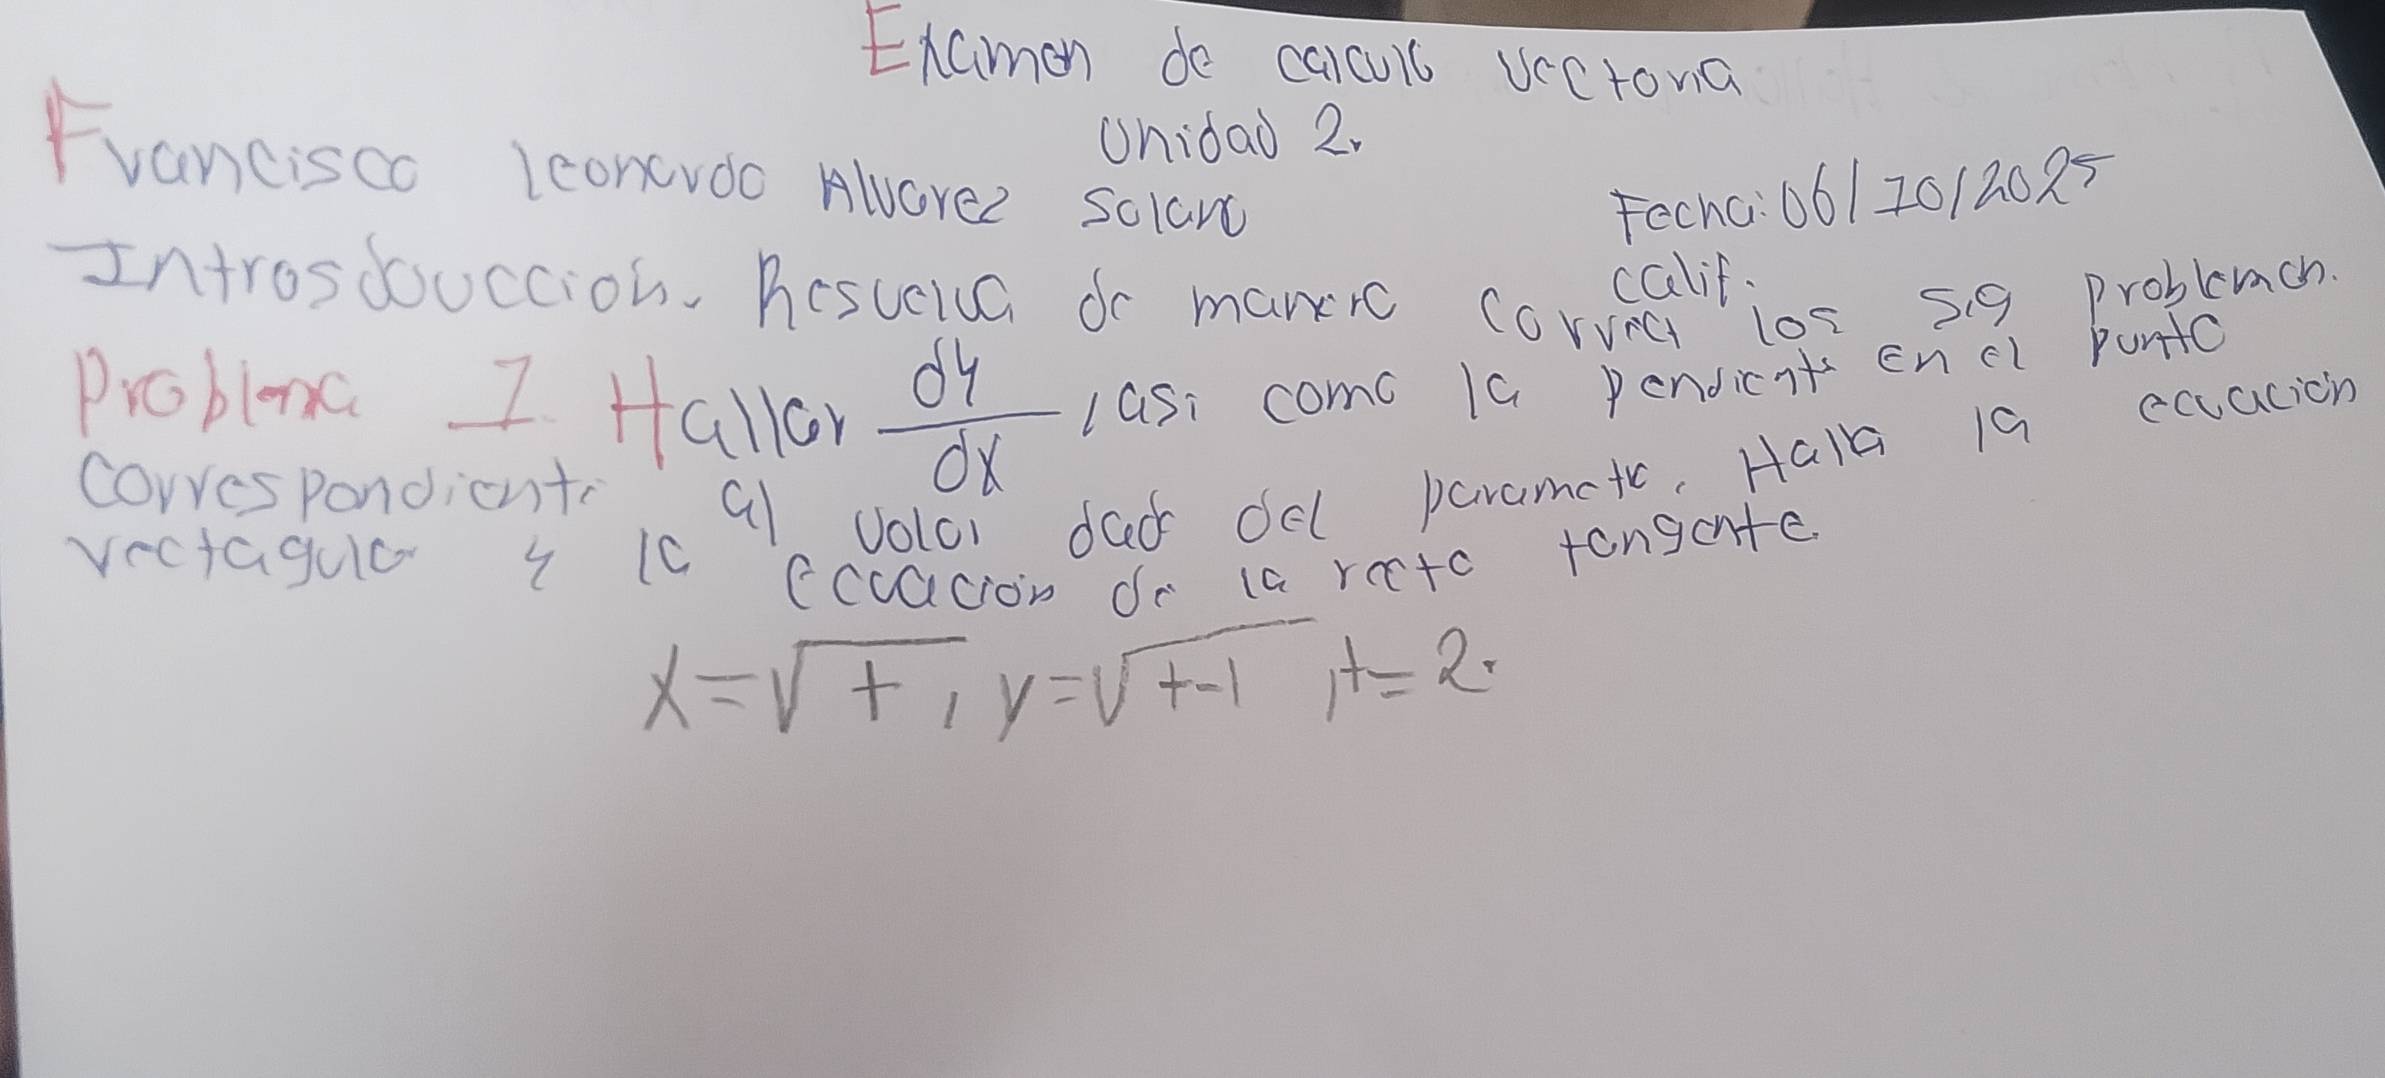 Examen de calculo vectoria
Unidad 2.
Francisco leonardo Alvarez Solano
Fecha: 06/10/2025
Calif.
Introsdouccion. Resuelva de manera correct los sig problemas.
Problema 1. Hallar dy/dx, asi como la pendiente en el punto
correspondiente al valor dado del parametro. Halla la ecuación
rectagular y la ecuación de la recta tangente.
x=√t, y=√t-1, t=2.